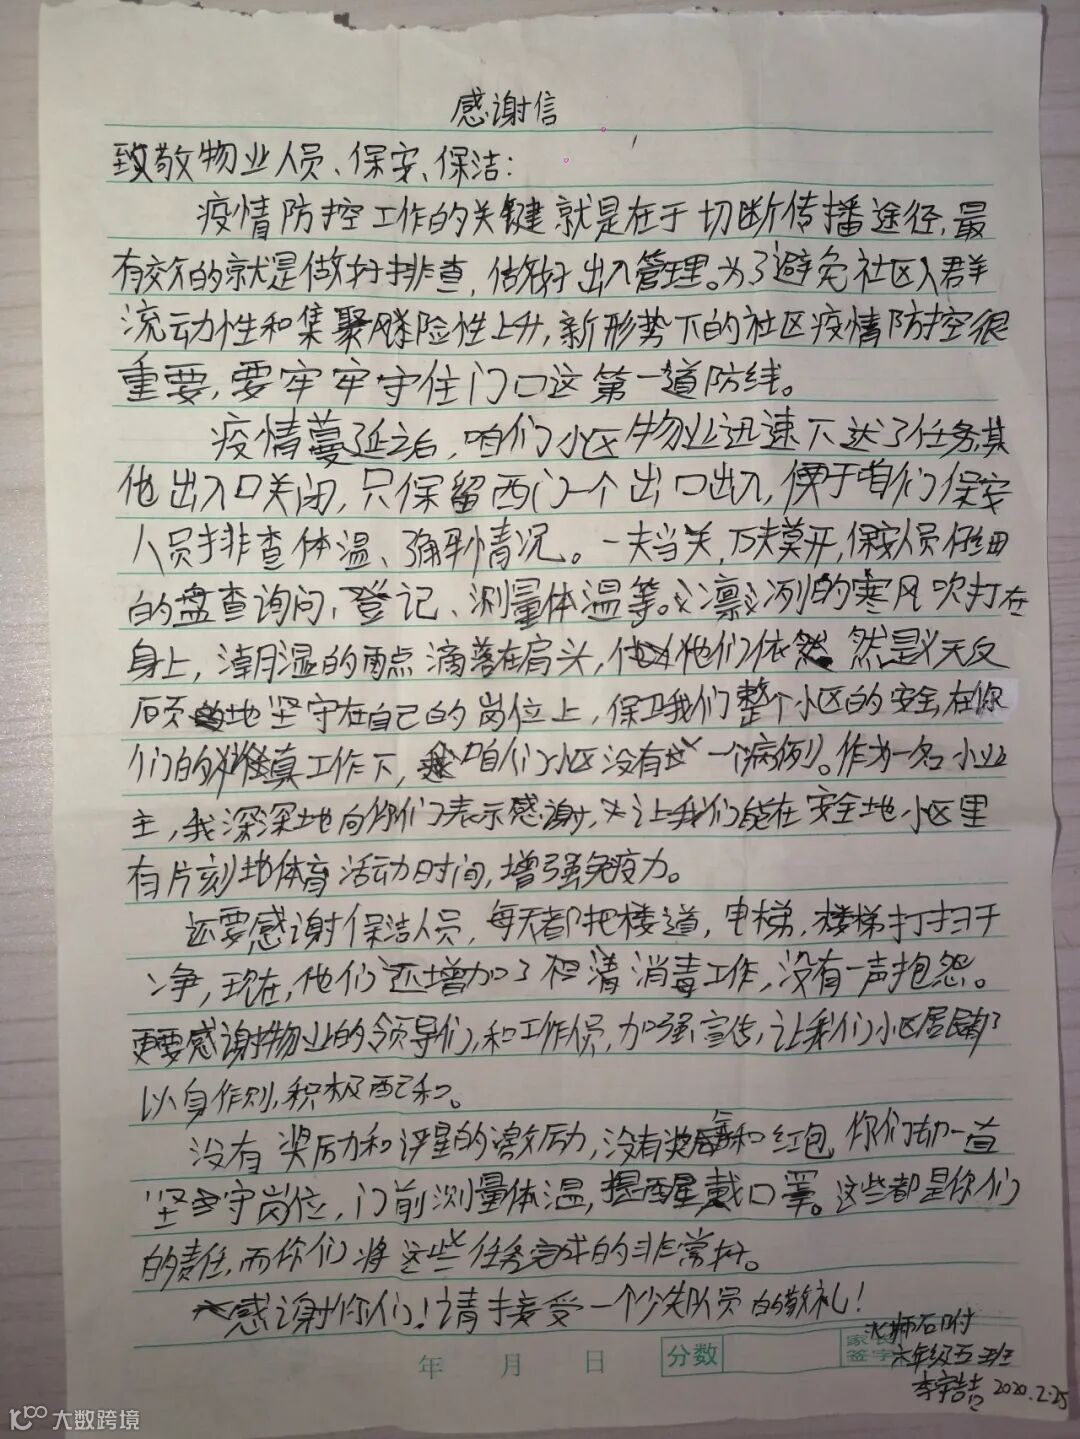 感谢信
致敬物业人员、保安、保洁:
疫情防控工作的关键就是在于切断传播途径,最
有效的就是做好排查,做好出入管理。为了避免社区人群
流动性和集聚风险性上升,新形势下的社区疫情防控很
重要,要牢牢守住门口这第一道防线。
疫情蔓延之后,咱们小区物业迅速下达了任务,其
他出入口关闭,只保留西门一个出口出入,便于咱们保安
人员排查体温、了解情况。一夫当关,万夫莫开,保安人员仔细
的盘查询问、登记、测量体温等。凛冽的寒风吹打在
身上,潮湿的雨点滴落在肩头,他们依然是义无反
顾地坚守在自己的岗位上,保卫我们整个小区的安全,在你
们的认真工作下,咱们小区没有一个病例。作为一名小业
主,我深深地向你们表示感谢,让我们能在安全地小区里
有片刻地体育活动时间,增强免疫力。
还要感谢保洁人员,每天都把楼道,电梯,楼梯打扫干
净,现在,他们还增加了和清消毒工作,没有一声抱怨。
更要感谢物业的领导们,和工作人员,加强宣传,让我们小区居民都
以身作则,积极配和。
没有奖励和评星的激励,没有奖和红包,你们却一直
坚守岗位,门前测量体温,提醒戴口罩。这些都是你们
的责任,而你们将这些任务完成的非常好。
感谢你们!请接受一个少先队员的敬礼!
石附
年 月 日 分数 家长签字
六年级五班
李宇喆 2020.2.25
大数跨境